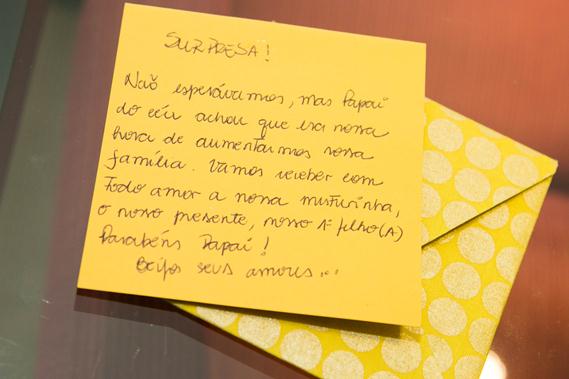 SURPRESA!
Não esperávamos, mas Papai
do céu achou que era nossa
hora de aumentarmos nossa
família. Vamos receber com
todo amor a nossa misturinha,
o nosso presente, nosso 1º filho(A)
Parabéns Papai!
Beijos seus amores...